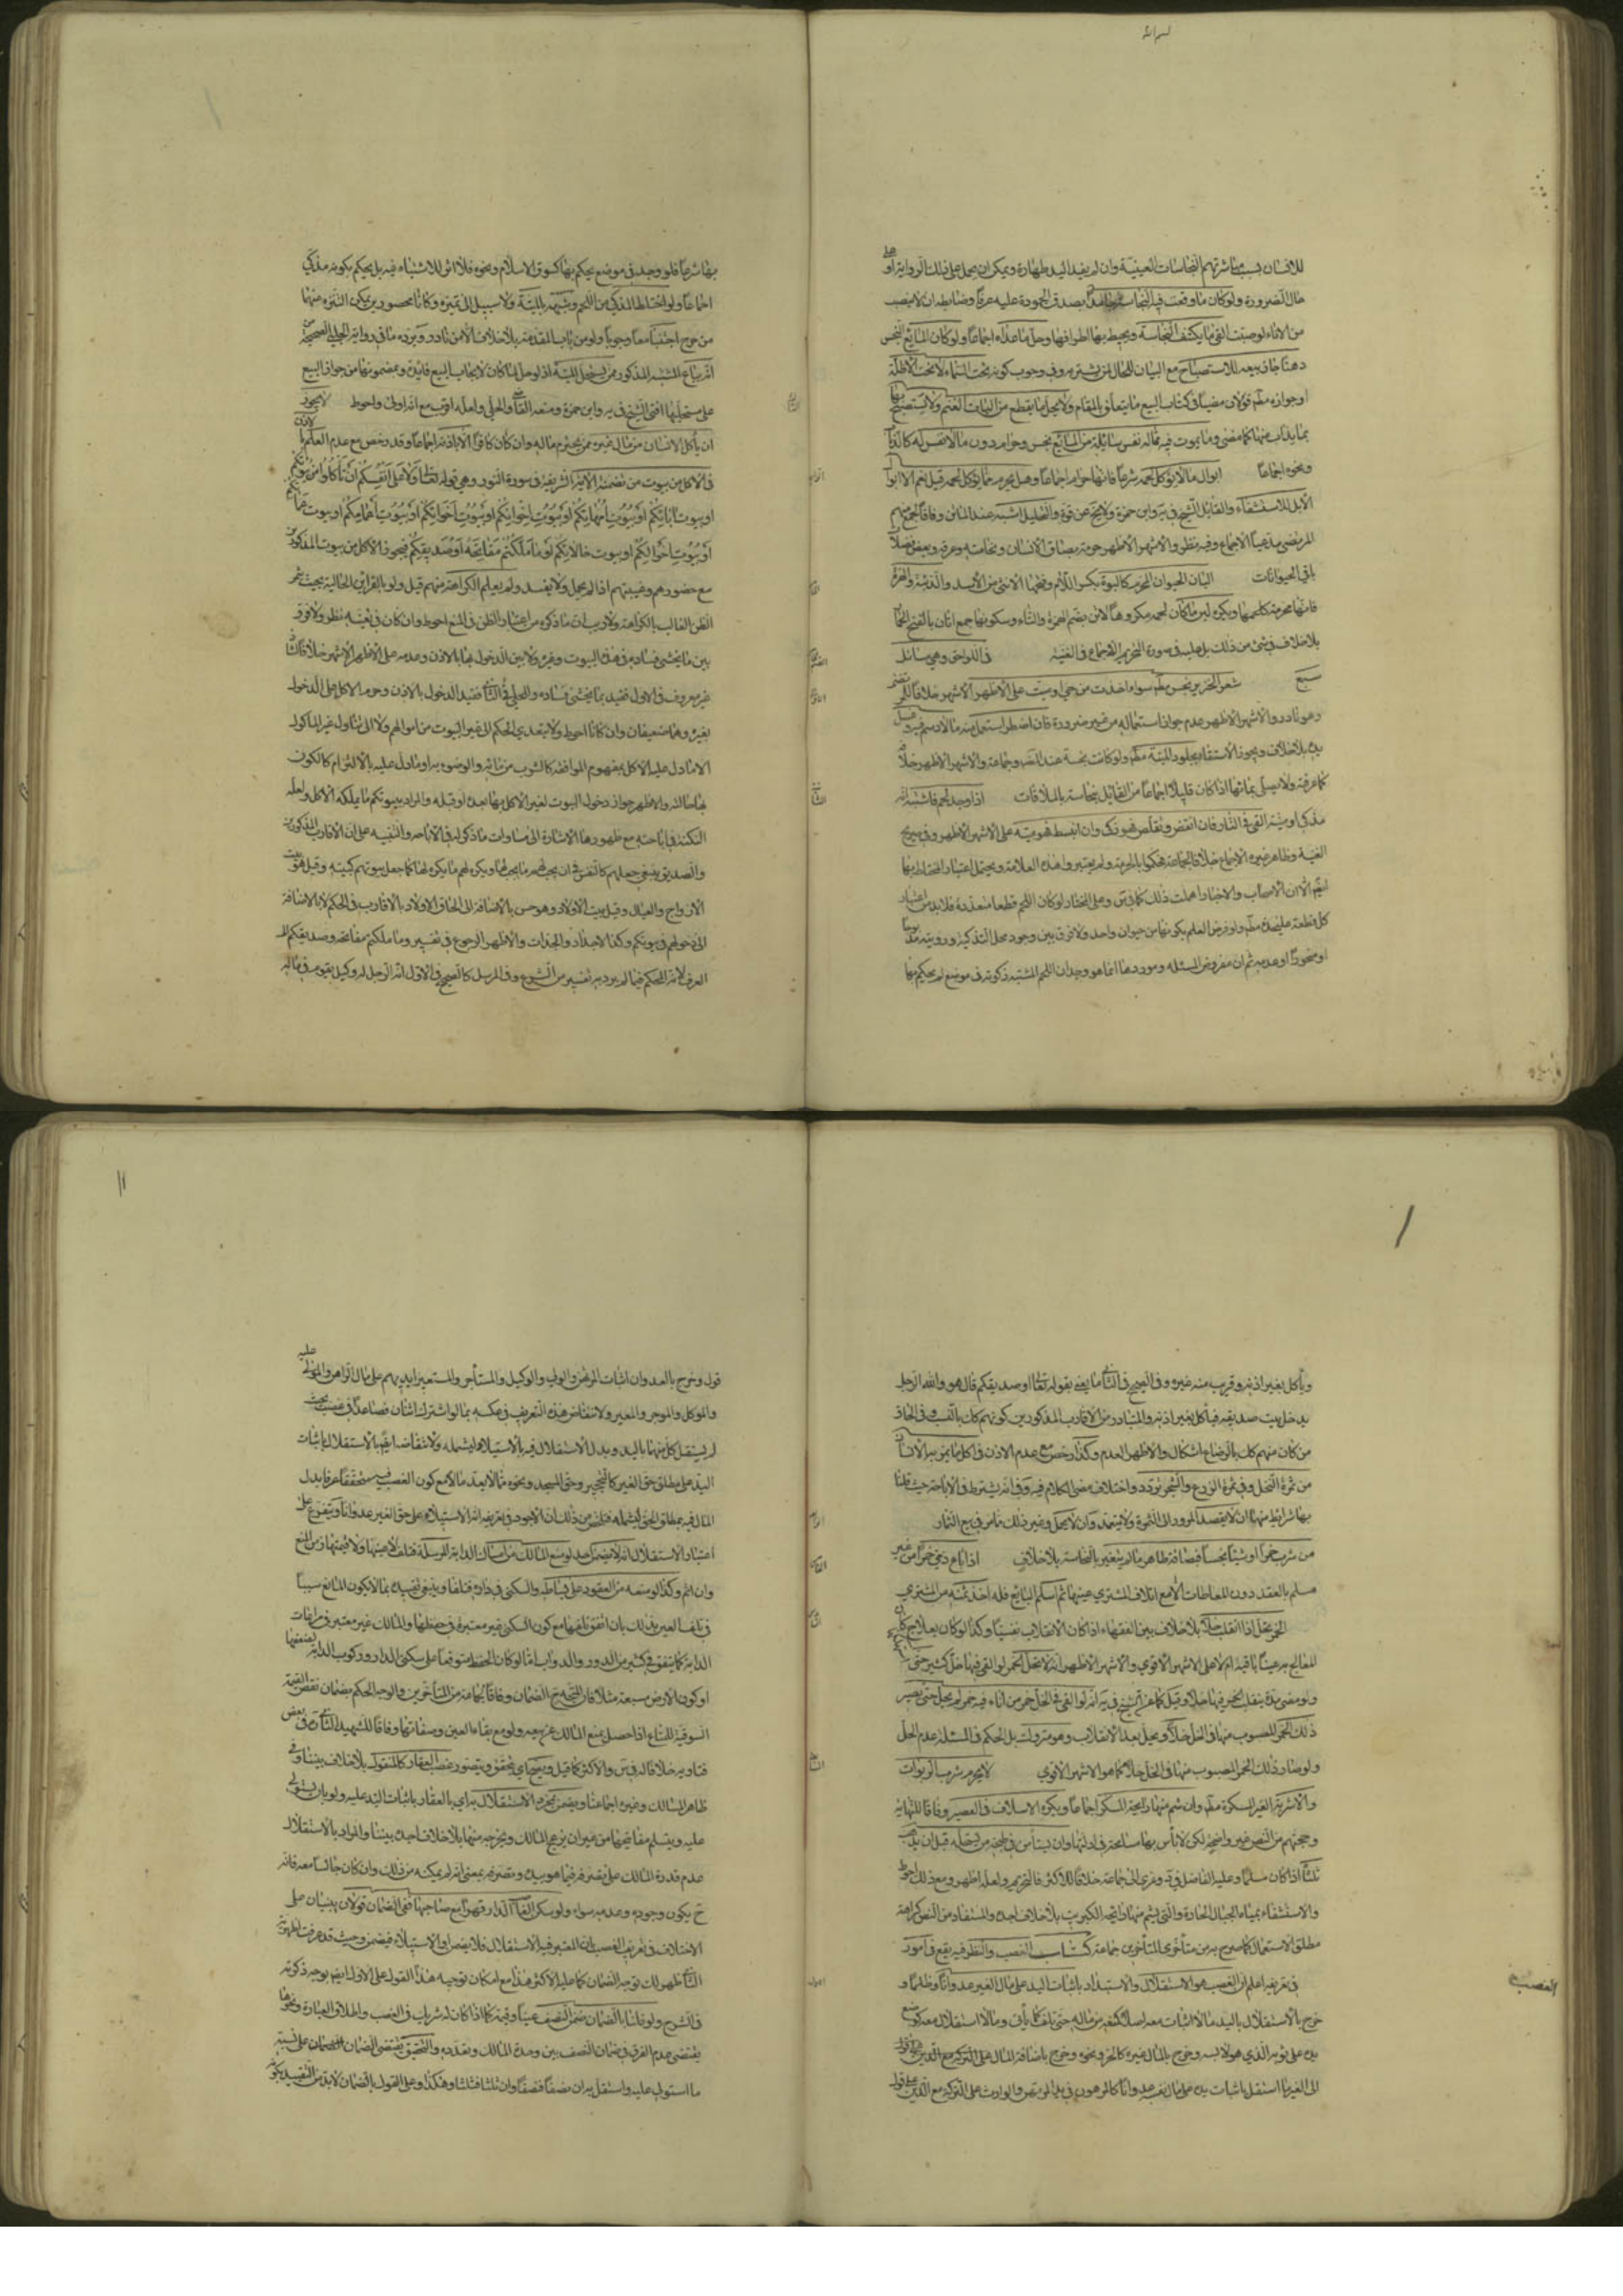 بسم الله
للانسان بسبب مباشرتهم النجاسات العينية وان لم يفد اليد طهارة ويمكن ان يحمل على ذلك الرواية او
حال الضرورة ولو كان ما وقعت فيه النجاسة جامدا يصدق الجمودة عليه عرفا وضابطه ان لا ينصب
من الاناء لو صبت القى ما يكتنف النجاسة ويحيط بها اطرافها وحل ما عداه اجماعا ولو كان المايع النجس
دهنا جاز بيعه للاستصباح مع البيان للحال لمن يشتريه وفي وجوب كونه تحت السماء لا تحت الاظلة
او جوازه مطلقا قولان مضيا في كتاب البيع ما يتعلق بالمقام ولا يحل ما يقطع من اليات الغنم ولا يستصبح بها
بما يذاب منها كما مضى وما يموت فيه ماله نفس سائلة من المايع نجس وحرام دون ما لا نفس له كالذباب
ونحوه اجماعا ابوال ما لا يؤكل لحمه شرعا فانها حرام اجماعا وهل يحرم مما يؤكل لحمه قيل نعم الا ابوال
الابل للاستشفاء والقائل الشيخ في ية وابن حمزة ولا يخ عن قوة والتحليل اشبه عند الماتن وفاقا لجمع منهم
المرتضى مدعيا الاجماع وفيه نظر والاشهر الاظهر حرمة بصاق الانسان ونخامته وعرقه وبعض فضلات
باقي الحيوانات البان الحيوان المحرم كاللبوة بكسر اللام وفتحها الانثى من الاسد والذئبة والهرة
فانها محرمة كلحمها ويكره لبن ما كان لحمه مكروها كالاتن بضم الهمزة والتاء وسكونها جمع اتان بالفتح الحمارة
بلا خلاف في شئ من ذلك بل عليه في صورة التحريم الاجماع في الغنية في اللواحق وهي مسائل
سبع شعر الخنزير نجس مطلقا سواء اخذت من حي او ميت على الاظهر الاشهر خلافا للمرتضى
وهو نادر والاشهر الاظهر عدم جواز استعماله من غير ضرورة فان اضطر استعمل منه ما لا دسم فيه وغسل
يده بلا خلاف ويجوز الاستقاء بجلود الميتة مطلقا ولو كانت نجسة عند المصنف وجماعة والاشهر الاظهر خلافه
كما عرفته ولا يصلى بمائها اذا كان قليلا اجماعا من القائل بنجاسته بالملاقات اذا وجد لحم فاشتبه انه
مذكى او ميتة القي في النار فان انقبض وتقلص فهو ذكى وان انبسط فهو ميتة على الاشهر الاظهر وفي صريح
الغنية وظاهر غيره الاجماع خلافا لجماعة فحكموا بالحرمة ولم يعتبروا هذه العلامة ويحتمل اعتبار المختلط بها
ايضا الا ان الاصحاب والاخبار اهملت ذلك كما في س وعلى المختار لو كان اللحم قطعا متعددة فلا بد من اعتبار
كل قطعة على حدة مطلقا ولو فرض العلم بكونها من حيوان واحد ولا فرق بين وجود محل التذكية ورؤيته مذبوحا
او منحورا او عدمه ثم ان مفروض المسئلة وموردها انما هو وجدان اللحم المشتبه ذكوته في موضع لم يحكم بها
بها شرعا فلو وجد في موضع يحكم بها كسوق الاسلام ونحوه فلا اثر للاشتباه فيه بل يحكم بكونه مذكى
اجماعا ولو اختلط المذكى من اللحم وشبهه بالميتة ولا سبيل الى تميزه وكانا محصورين يمكن التنزه عنها
من حرج اجتنبا معا وجوبا ولو من باب المقدمة بلا خلاف الا من نادر ويرده ما في رواية الحلبي الصحيحة من
انه يباع المشتبه المذكور ممن يستحل الميتة اذ لو حل لما كان لايجاب البيع فائدة وبمضمونها من جواز البيع
على مستحليها افتى الشيخ في ية وابن حمزة ومنعه القاضي والحلي ولعله اقوى مع انه اولى واحوط لا يجوز
ان يأكل الانسان من مال غيره ممن يحترم ماله وان كان كافرا الا باذنه اجماعا وقد رخص مع عدم العلم بالاذن
في الاكل من بيوت من تضمنته الاية الشريفة في سورة النور وهي قوله تعالى ولا على انفسكم ان تأكلوا من بيوتكم
او بيوت ابائكم او بيوت امهاتكم او بيوت اخوانكم او بيوت اخواتكم او بيوت اعمامكم او بيوت عماتكم
او بيوت اخوالكم او بيوت خالاتكم او ما ملكتم مفاتحه او صديقكم فيجوز الاكل من بيوت المذكورين
مع حضورهم وغيبتهم اذا لم يحمل ولا يفسد ولم يعلم الكراهة منهم قيل ولو بالقراين الحالية بحيث يثمر
الظن الغالب بالكراهة ولا ريب ان ما ذكره من اعتبار الظن في المنع احوط وان كان في تعينه نظر ولا فرق
بين ما يخشى فساده في هذه البيوت وغيره ولا بين الدخول بها بالاذن وعدمه على الاظهر الاشهر خلافا لشاذ
غير معروف في الاول فقيد بما يخشى فساده وللحلي في الثاني فقيد الدخول بالاذن وحرم الاكل مع الدخول
بغيره وهما ضعيفان وان كانا احوط ولا يتعدى الحكم الى غير البيوت من اموالهم ولا الى تناول غير المأكول
الا ما دل عليه الاكل بمفهوم الموافقة كالشرب من مائه والوضوء به او ما دل عليه بالالتزام كالكون
بها حالته والاظهر جواز دخول البيوت لغير الاكل بها بعده او قبله والمراد ببيوتكم ما يملكه الاكل ولعله
النكتة في اباحته مع ظهورها الاشارة الى مساوات ما ذكر له في الاباحة والتنبيه على ان الاقارب المذكورين
والصديق ينبغي جعلهم كالنفس في ان يحب لهم ما يحب لها ويكره لهم ما يكره لها كما جعل بيوتهم كبيته وقيل هو بيت
الازواج والعيال وقيل بيت الاولاد وهو حسن بالاضافة الى الحاق الاولاد بالاقارب في الحكم لا بالاضافة
الى دخولهم في بيوتكم وكذا الاجداد والجدات والاظهر الرجوع في تفسير وما ملكتم مفاتحه وصديقكم الى
العرف لانه المحكم فيما لم يرد به تفسير من الشرع وفي المرسل كالصحيح في الاول انه الرجل له وكيل يقوم في ماله
ويأكل بغير اذنه وقريب منه غيره وفي الصحيح في الثاني ما يعني بقوله تعالى او صديقكم قال هو والله الرجل
يدخل بيت صديقه فيأكل بغير اذنه والمتبادر من الاقارب المذكورين كونهم كك بالنسب وفي الحاق
من كان منهم كك بالرضاع اشكال والاظهر العدم وكذا رخص مع عدم الاذن في اكل ما يمر به الانسان
من ثمرة النخل وفي ثمرة الزرع والشجر تردد واختلاف مضى الكلام فيه وفي انه يشترط في الاباحة حيث قلنا
بها شرايط منها ان لا يقصد المرور الى الثمرة ولا يفسد وان لا يحمل وغير ذلك مما مر في بيع الثمار
من شرب خمرا او شيئا نجسا فبصاقه طاهر ما لم يتغير بالنجاسة بلا خلاف اذا باع ذمي خمرا من غير
مسلم بالعقد دون المعاطات الا مع اتلاف المشتري عينها ثم اسلم البايع فله اخذ ثمنه من المشتري
الخمر يحل اذا انقلب خلا بلا خلاف بين الفقهاء اذا كان الانقلاب نفسيا وكذا لو كان بعلاج كان
المعالج به عينا باقية ام لا على الاشهر الاقوى والاشهر الاظهر انه لا تحل الخمر لو القي فيها خل كثير حتى
ولو مضى مدة ينقل الخمر فيها خلا وقيل كما عن الشيخ في ية انه لو القي في الخل خمر من اناء فيه خمر لم يحل حتى يصير
ذلك الخمر المصبوب منها في الخل خلا ويحل بعد الانقلاب وهو متروك بل الحكم في المسئلة عدم الحل
ولو صار ذلك الخمر المصبوب منها في الخل خلا كما هو الاشهر الاقوى لا يحرم شرب الربوبات
والاشربة الغير المسكرة مطلقا وان شم منها رايحة المسكر اجماعا ويكره الاسلاف في العصير وفاقا للنهاية
وحجتهم من النص غير واضحة لكن لا بأس بها مسامحة في ادلتها وان يستأمن في طبخه من يستحله قبل ان يذهب
ثلثا اذا كان مسلما وعليه الفاضل في د وعزي الى جماعة خلافا للاكثر فالتحريم ولعله اظهر ومع ذلك احوط
والاستشفاء بمياه الجبال الحارة والتي يشم منها رائحة الكبريت بلا خلاف اجده والمستفاد من النص كراهة
مطلق الاستعمال كما صرح به من متأخري المتأخرين جماعة كتاب الغصب والنظر فيه يقع في امور
الغصب
في تعريفه اعلم ان الغصب هو الاستقلال والاستبداد باثبات اليد على مال الغير عدوانا وظلما و
خرج بالاستقلال باليد ما لا اثبات معه اصلا كمنعه من ماله حتى يتلف كما يأتي وما لا استقلال معه كوضع
يده على ثوبه الذي هو لابسه وخرج بالمال غيره كالحر ونحوه وخرج باضافة المال
الى الغير ما استقل باثبات يده على مال نفسه عدوانا كالمرهون في يد المرتهن والوارث على التركة مع الدين على قول
قول وخرج بالعدوان اثبات المرتهن والولي والوكيل والمستأجر والمستعير ايديهم على مال الراهن والمولى عليه
والموكل والموجر والمعير ولانتقاض هذه التعريف في عكسه بما لو اشترك اثنان فصاعدا في غصب بحيث
لم يستقل كل منهما باليد وبدل الاستقلال فيه بالاستيلاء ليشمله ولانتقاضه ايضا بالاستقلال باثبات
اليد على مطلق حق الغير كالتحجير وحق المسجد ونحوه مما لا يعد مالا مع كون الغصب فيه متحققا عرفا بدل
المال فيه بمطلق الحق ليشمله فتلخص من ذلك ان الاجود في تعريفه انه الاستيلاء على حق الغير عدوانا ويتفرع على
اعتبار الاستقلال انه لا يضمن احد لو منع المالك من امساك الدابة المرسلة فتلف لا عينها ولا قيمتها زمن المنع
وان اثم وكذا لو منعه من القعود على بساطه والسكنى في داره فتلفا وينبغي تقييده بما لا يكون المانع سببا
في تلف العين بذلك بان اتفق تلفها مع كون السكنى غير معتبرة في حفظها والمالك غير معتبر في مراعات
الدابة كما يتفق في كثير من الدور والدواب اما لو كان الحفظ متوقفا على سكنى الدار وركوب الدابة لضعفها
او كون الارض مسبعة مثلا فان المتجه ح الضمان وفاقا لجماعة من المتأخرين والوجه الحكم بضمان نقص القيمة
السوقية للمتاع اذا حصل بمنع المالك عن بيعه ولو مع بقاء العين وصفاتها وفاقا للشهيد الثاني في بعض
فتاويه خلافا له في س والاكثر كما قيل ويصح اي يتحقق ويتصور غصب العقار كالمنقول بلا خلاف بيننا وفي
ظاهر المسالك وغيره اجماعنا ويضمن بمجرد الاستقلال به اي بالعقار باثبات اليد عليه ولو بان يستولى
عليه ويتسلم مفاتيحها من غير ان يزعج المالك ويخرجه منها بلا خلاف اجده بيننا والمراد بالاستقلال
عدم قدرة المالك على تصرف فيما هو بيده وتصرفه بمعنى انه لم يمكنه من ذلك وان كان جالسا معه فانه
ح يكون وجوده وعدمه سواء ولو سكن الغاصب الدار قهرا مع صاحبها ففي الضمان قولان يبنيان على
الاختلاف في تعريف الغصب فان المعتبر فيه الاستقلال فلا يضمن او الاستيلاء فيضمن وحيث قد عرفت اظهرية
الثاني ظهر لك توجه الضمان كما عليه الاكثر هذا مع امكان توجيه هذا القول على الاول ايضا بوجه ذكرته
في الشرح ولو قلنا بالضمان ضمن النصف عينا وقيمة كما اذا كان له شريك في الغصب واطلاق العبارة ونحوها
يقتضي عدم الفرق في ضمان النصف بين وحدة المالك وتعدده والتحقيق يقتضي الضمان على نسبة
ما استولى عليه واستقل به ان نصفا فنصفا وان ثلثا فثلثا وهكذا وعلى القول بالضمان لا بد من التقييد بكونه